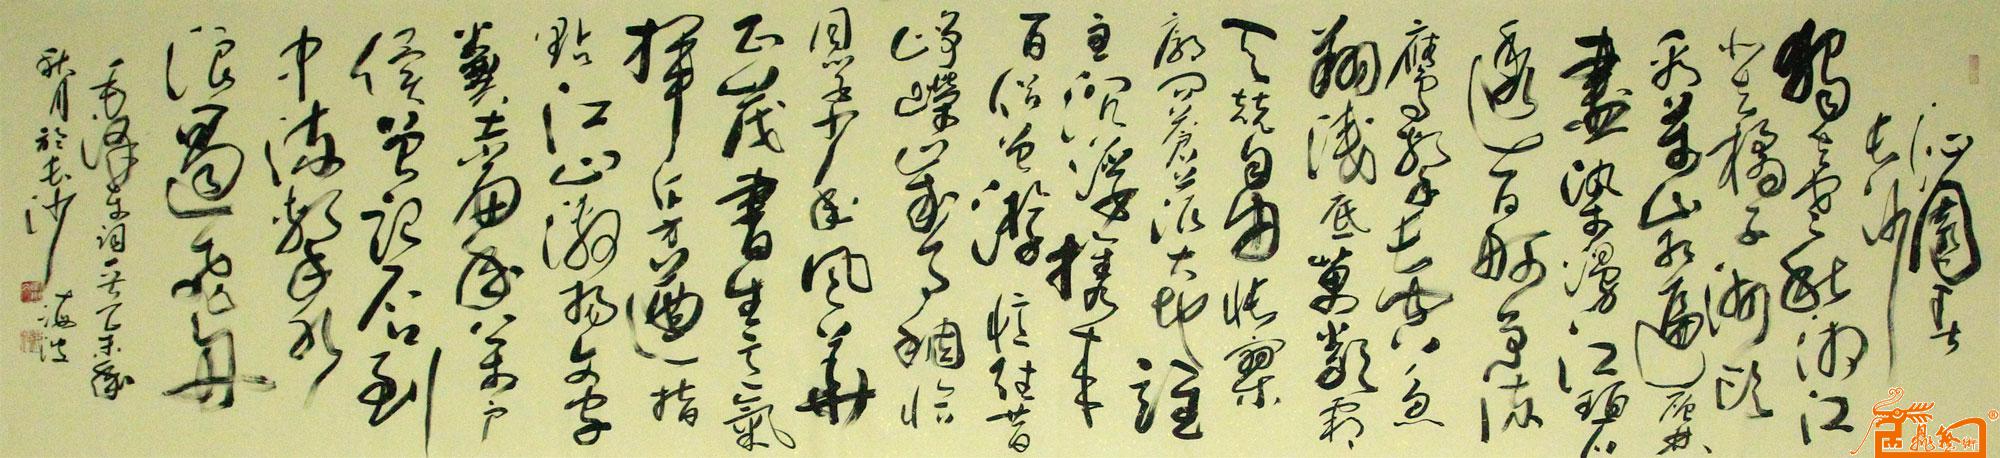 沁園春
長沙
獨立寒秋湘江
北去橘子洲頭
看萬山紅遍層林
盡染漫江碧
透百舸爭流
鷹擊長空魚
翔淺底萬類霜
天競自由悵寥
廓問蒼茫大地誰
主沉浮攜來
百侶曾游憶往昔
崢嶸歲月稠恰
同學少年風華
正茂書生意氣
揮斥方遒指
點江山激揚文字
糞土當年萬戶
侯曾記否到
中流擊水
浪遏飛舟
毛澤東詞一首乙未歲
秋月於長沙 海波